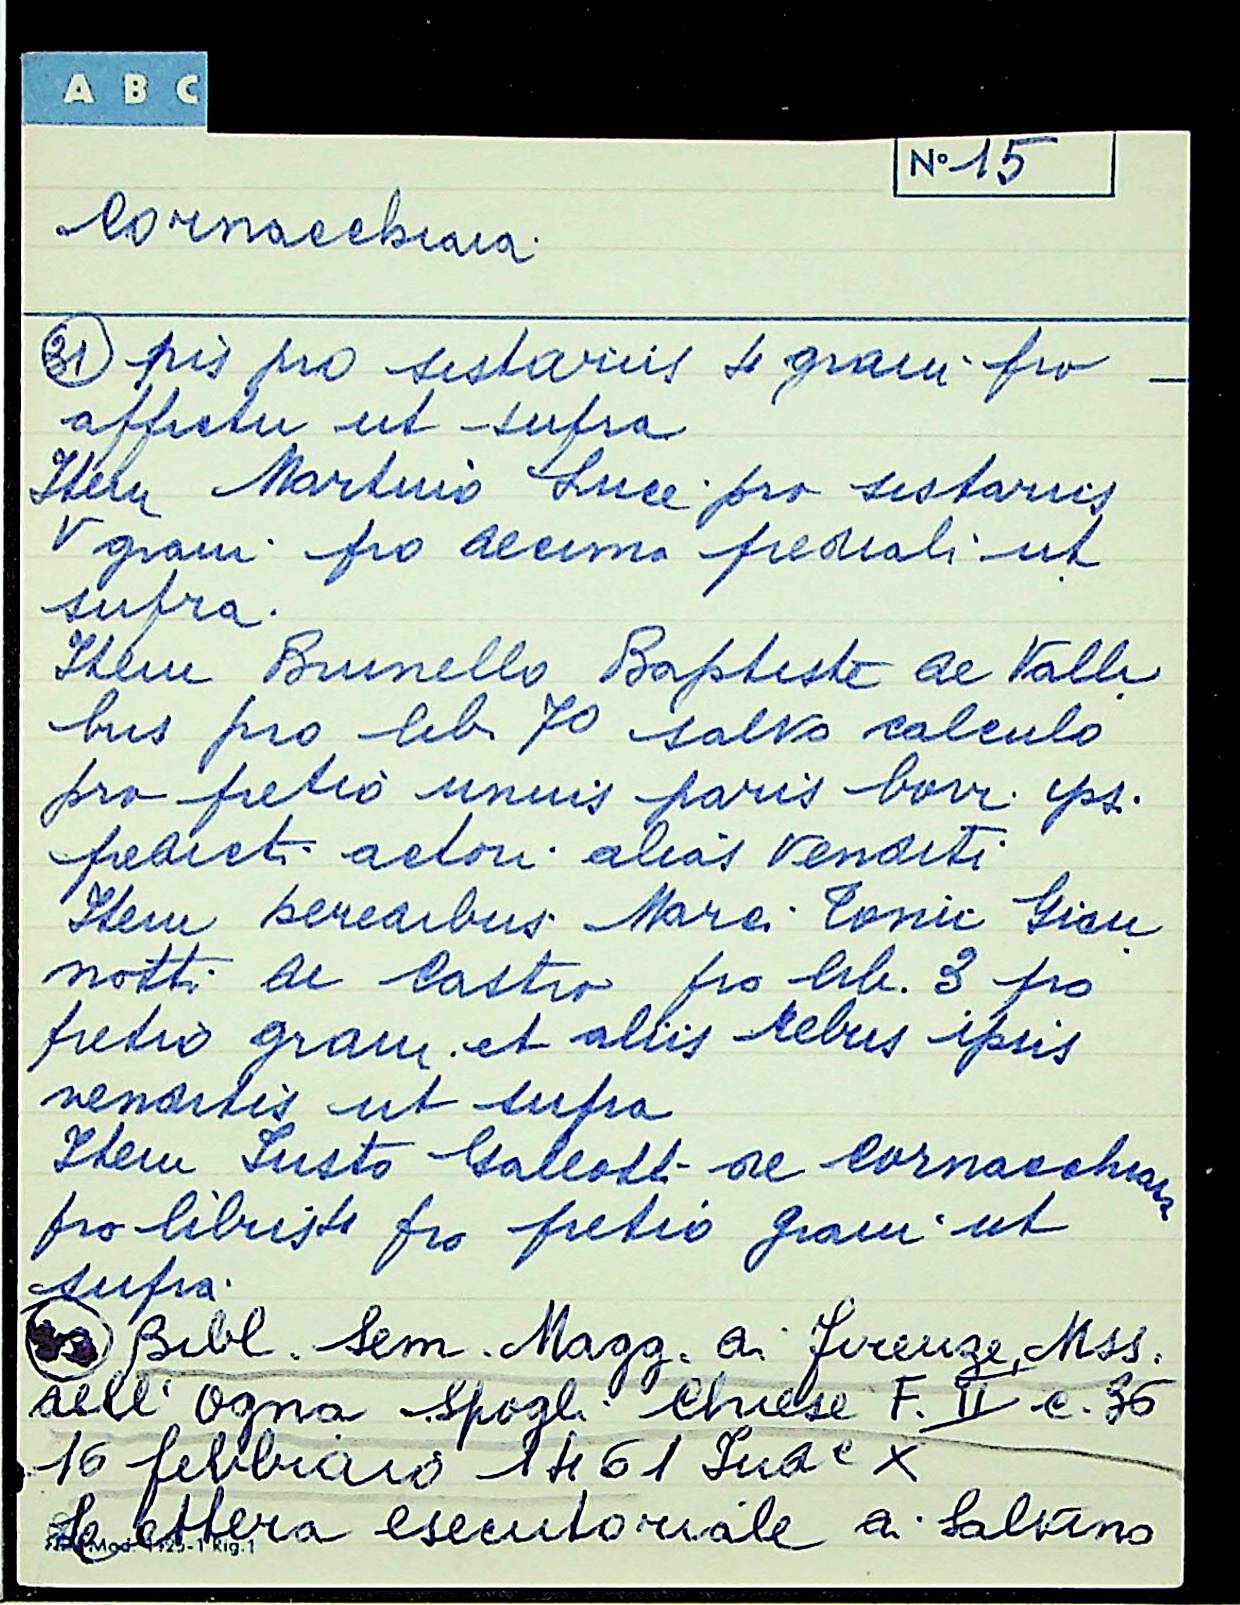 A B C
N° 15
Cornacchiaia
31 pis pro sestariis 4 grani pro
affictu ut supra
Item Martino Luce pro sestariis
V grani pro decima prediali ut
supra.
Item Brunello Baptiste de Valli
bus pro lib. 70 salvo calculo
pro pretio unuis paris bovi. ips.
predicti actori alias venditi
Item heredibus Marci Tonii Gian
notti de Castro pro lib. 3 pro
pretio grani et aliis rebus ipsis
venditis ut supra
Item Iusto Galeotti de Cornacchiaia
pro libris 4 pro pretio grani ut
supra.
Bibl. Sem. Magg. di Firenze, Mss.
dell'Ogna Spogli Chiese F. II c. 36
16 febbraio 1461 Indc X
Lettera esecutoriale di Salvino
Mod. 1125-1 Rig. 1